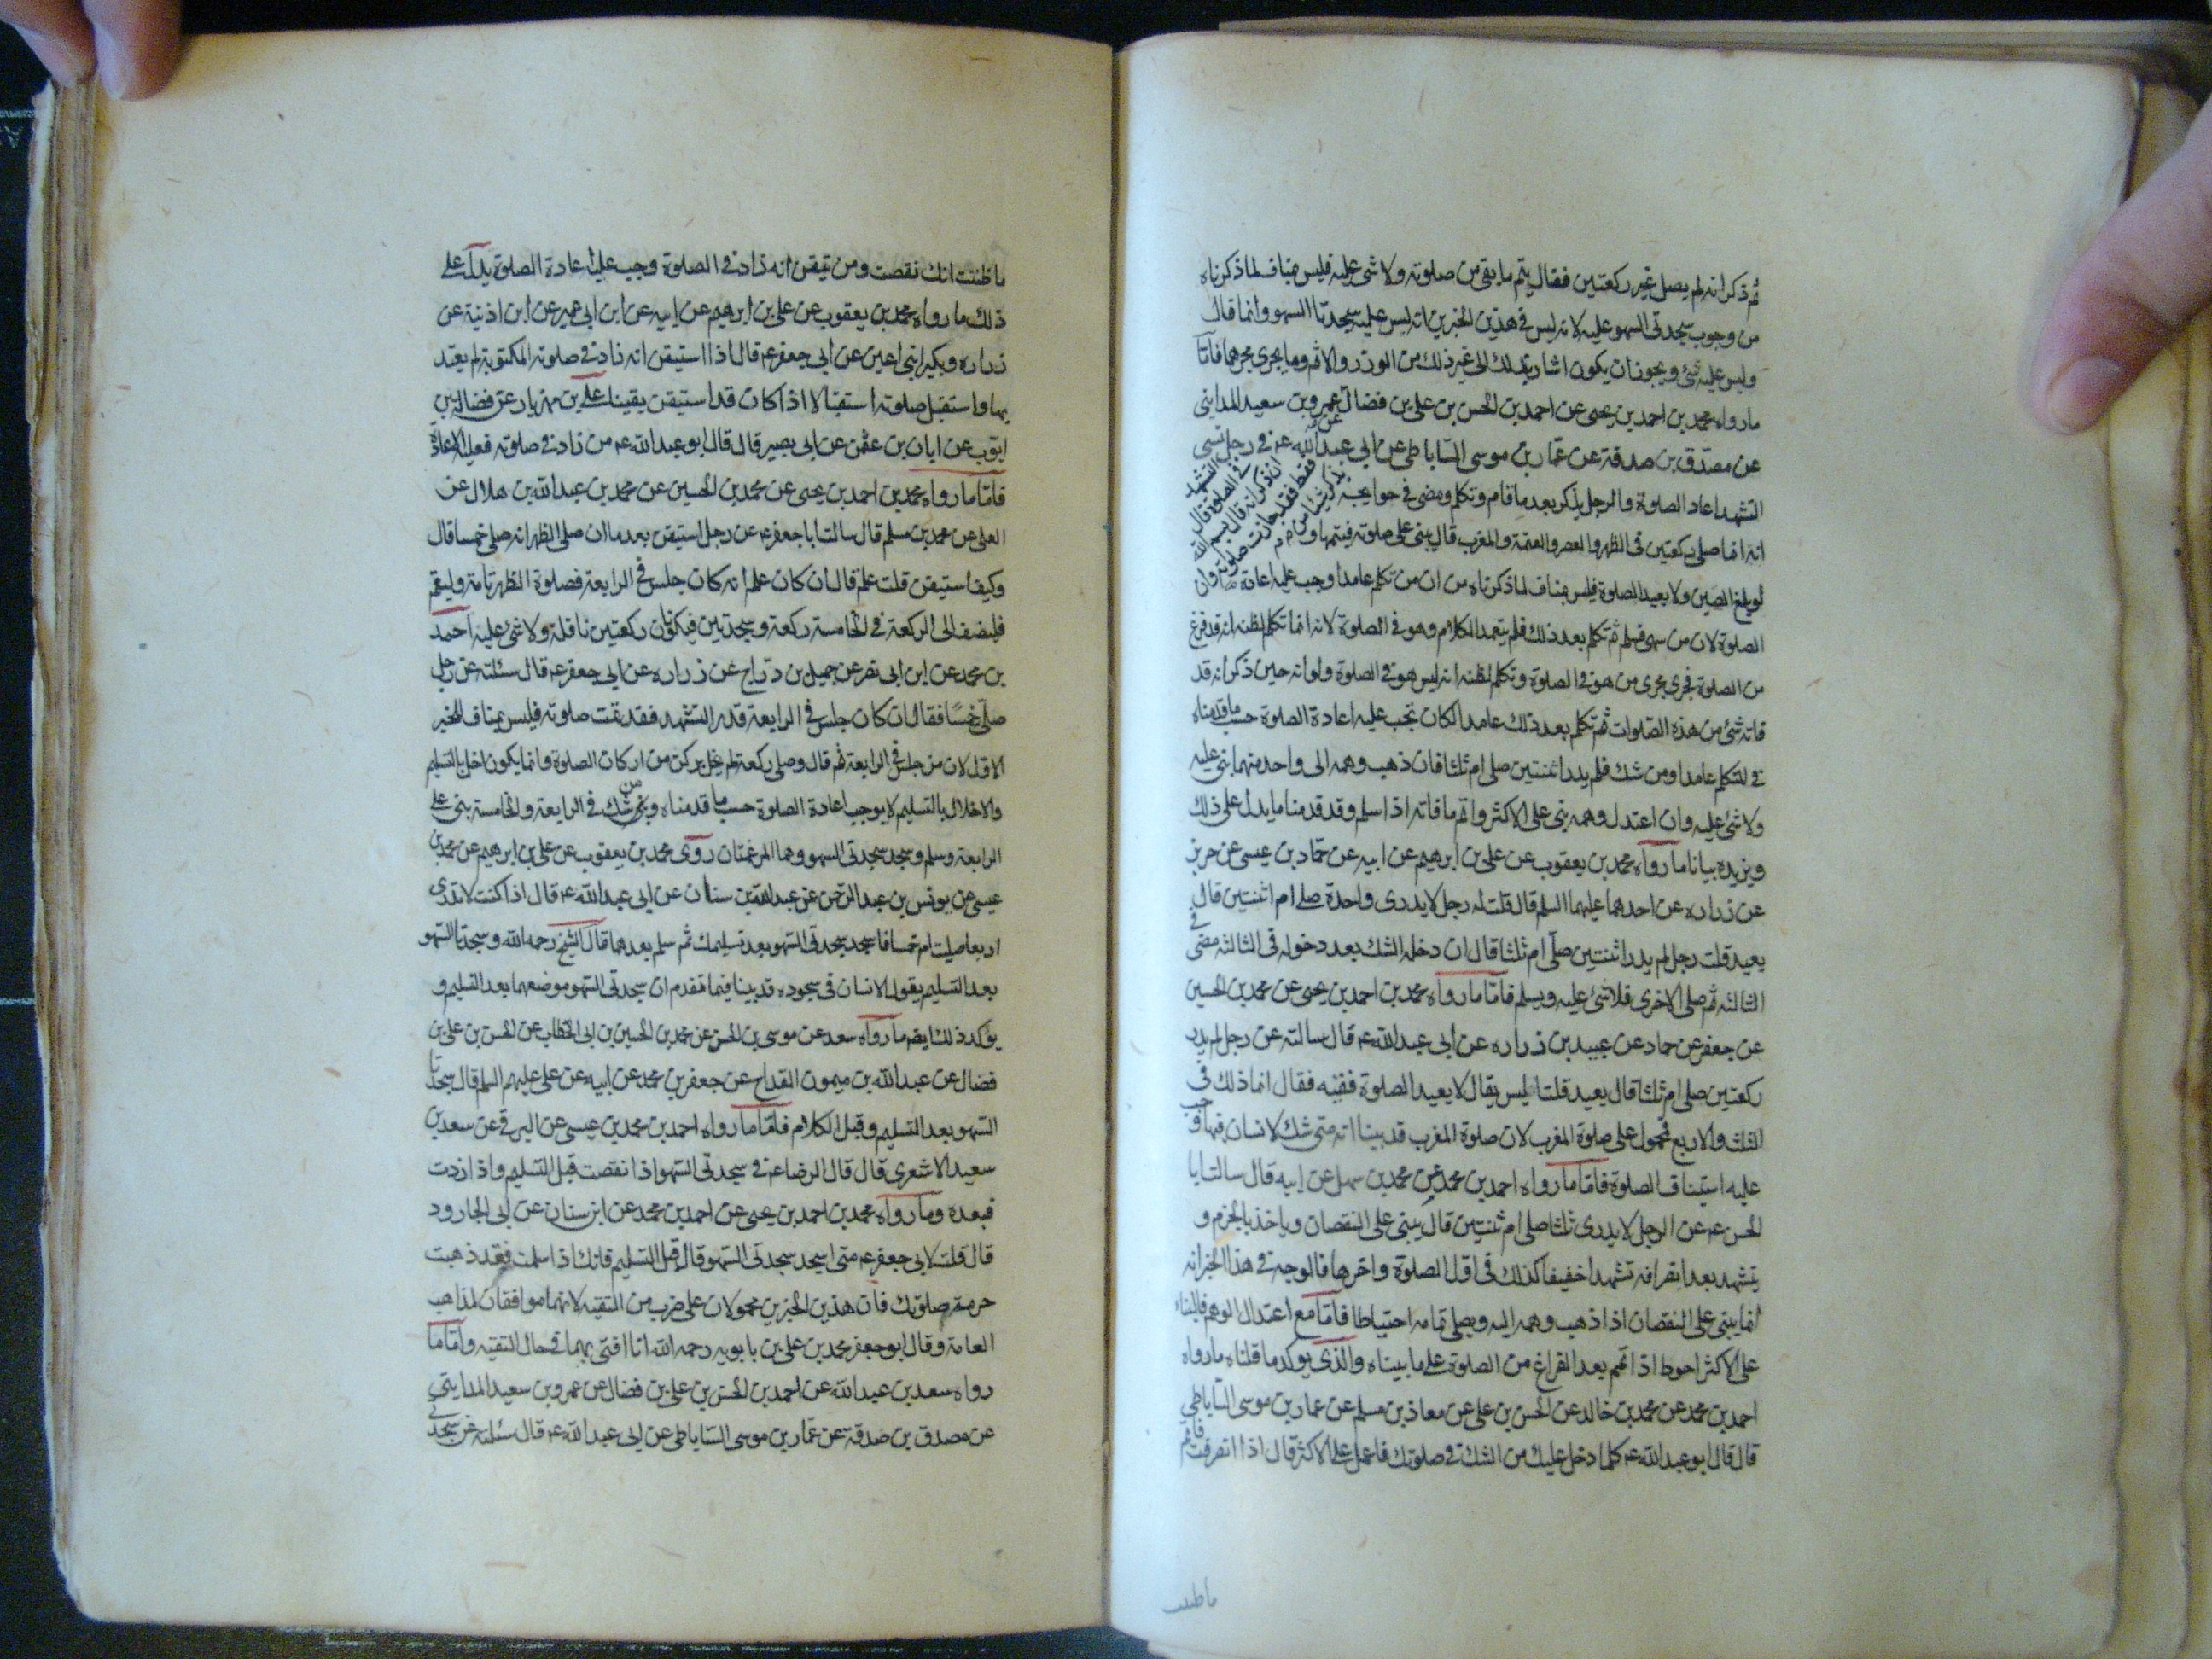 ثم ذكر انه لم يصل غير ركعتين فقال يتم ما بقى من صلوته ولا شئ عليه فليس بمناف لما ذكرناه
من وجوب سجدتى السهو عليه لانه ليس فى هذين الخبرين انه ليس عليه سجدتا السهو وانما قال
وليس عليه شئ ويجوز ان يكون اشار بذلك الى غير ذلك من الوزر والاثم وما يجرى مجرهما فاما
ما رواه محمد بن احمد بن يحيى عن احمد بن الحسن بن على بن فضال عن عمرو بن سعيد المداينى
عن مصدق بن صدقة عن عمار بن موسى الساباطى عن ابى عبد الله ع فى رجل نسى
التشهد اعاد الصلوة والرجل يذكر بعد ما قام وتكلم ومضى فى حوايجه
ان ذكر انه قال بسم الله
فقط فقد جازت صلوته وان
لم يذكر شيئا من التشهد
انه انما صلى ركعتين فى الظهر والعصر والعتمة والمغرب قال يبنى على صلوته فيتمها
لو يبلغ الصين ولا يعيد الصلوة فليس بمناف لما ذكرناه من ان من تكلم عامدا وجب عليه اعادة
الصلوة لان من سهى فسلم ثم تكلم بعد ذلك فلم يتعمد الكلام وهو فى الصلوة لانه انما تكلم لظنه انه قد فرغ
من الصلوة فجرى مجرى من هو فى الصلوة وتكلم لظنه انه ليس هو فى الصلوة ولو انه حين ذكر انه قد
فاته شئ من هذه الصلوات ثم تكلم بعد ذلك عامدا لكان تجب عليه اعادة الصلوة حسب ما قدمناه
فى المتكلم عامدا ومن شك فلم يدر اثنتين صلى ام ثلثا فان ذهب وهمه الى واحد منهما بنى عليه
ولا شئ عليه وان اعتدل وهمه بنى على الاكثر واتم ما فاته اذا سلم وقد قدمنا ما يدل على ذلك
ويزيده بيانا ما رواه محمد بن يعقوب عن على بن ابرهيم عن ابيه عن حماد بن عيسى عن حريز
عن زراره عن احدهما عليهما السلم قال قلت له رجل لا يدرى واحدة صلى ام اثنتين قال
يعيد قلت رجل لم يدر اثنتين صلى ام ثلثا قال ان دخله الشك بعد دخوله فى الثالثه مضى فى
الثالثه ثم صلى الاخرى فلا شئ عليه ويسلم فاما ما رواه محمد بن احمد بن يحيى عن محمد بن الحسين
عن جعفر عن حماد عن عبيد بن زراره عن ابى عبد الله ع قال سالته عن رجل لم يدر
ركعتين صلى ام ثلثا قال يعيد قلت اليس يقال لا يعيد الصلوة فقيه فقال انما ذلك فى
الثلث والاربع فمحمول على صلوة المغرب لان صلوة المغرب قد بينا انه متى شك الانسان فيها وجب
عليه استيناف الصلوة فاما ما رواه احمد بن محمد عن محمد بن سهل عن ابيه قال سالت ابا
الحسن ع عن الرجل لا يدرى ثلثا صلى ام ثنتين قال يبنى على النقصان وياخذ بالجزم و
يتشهد بعد انصرافه تشهدا خفيفا كذلك فى اول الصلوة واخرها فالوجه فى هذا الخبر انه
انما يبنى على النقصان اذا ذهب وهمه اليه ويصلى تمامه احتياطا فاما مع اعتدال الوهم فالبناء
على الاكثر احوط اذا تمم بعد الفراغ من الصلوة على ما بيناه والذى يوكد ما قلناه ما رواه
احمد بن محمد عن محمد بن خالد عن الحسن بن على عن معاذ بن مسلم عن عمار بن موسى الساباطى
قال قال ابو عبد الله ع كلما دخل عليك من الشك فى صلوتك فاعمل على الاكثر قال اذا انصرفت فاتم
ما ظننت
ما ظننت انك نقصت ومن تيقن انه زاد فى الصلوة وجب عليه اعادة الصلوة يدل على
ذلك ما رواه محمد بن يعقوب عن على بن ابرهيم عن ابيه عن ابن ابى عمير عن ابن اذنية عن
زراره وبكير ابنى اعين عن ابى جعفر ع قال اذا استيقن انه زاد فى صلوته المكتوبة لم يعتد
بها واستقبل صلوته استقبالا اذا كان قد استيقن يقينا على بن مهزيار عن فضالة بن
ايوب عن ابان بن عثمن عن ابى بصير قال قال ابو عبد الله ع من زاد فى صلوته فعليه الاعادة
فاما ما رواه محمد بن احمد بن يحيى عن محمد بن الحسين عن محمد بن عبد الله بن هلال عن
العلا عن محمد بن مسلم قال سالت ابا جعفر ع عن رجل استيقن بعد ما ان صلى الظهر انه صلى خمسا قال
وكيف استيقن قلت علم قال ان كان علم انه كان جلس فى الرابعة فصلوة الظهر تامة وليقم
فليضف الى الركعة فى الخامسة ركعة وسجدتين فيكونان ركعتين نافلة ولا شئ عليه احمد
بن محمد عن ابن ابى نصر عن جميل بن دراج عن زراره عن ابى جعفر ع قال سئلته عن رجل
صلى خمسا فقال ان كان جلس فى الرابعة قدر التشهد فقد تمت صلوته فليس بمناف للخبر
الاول لان من جلس فى الرابعة ثم قال وصلى ركعة لم يخل بركن من اركان الصلوة وانما يكون اخل بالتسليم
والاخلال بالتسليم لا يوجب اعادة الصلوة حسب ما قدمناه ومن شك فى الرابعة والخامسة بنى على
الرابعة وسلم وسجد سجدتى السهو وهما المرغمتان روى محمد بن يعقوب عن على بن ابرهيم عن محمد بن
عيسى عن يونس بن عبد الرحمن عن عبد الله بن سنان عن ابى عبد الله ع قال اذا كنت لا تدرى
اربعا صليت ام خمسا فاسجد سجدتى السهو بعد تسليمك ثم سلم بعدهما قال الشيخ رحمه الله وسجدتا السهو
بعد التسليم يقول الانسان فى سجوده قد بينا فيما تقدم ان سجدتى السهو موضعهما بعد التسليم و
يؤكد ذلك ايضا ما رواه سعد عن موسى بن الحسن عن محمد بن الحسين بن ابى الخطاب عن الحسن بن على بن
فضال عن عبد الله بن ميمون القداح عن جعفر بن محمد عن ابيه عن على عليهم السلم قال سجدتا
السهو بعد التسليم وقبل الكلام فاما ما رواه احمد بن محمد بن عيسى عن البرقى عن سعد بن
سعيد الاشعرى قال قال الرضا ع فى سجدتى السهو اذا نقصت قبل التسليم واذا زدت
فبعده وما رواه محمد بن احمد بن يحيى عن احمد بن محمد عن ابن سنان عن ابى الجارود
قال قلت لابى جعفر ع متى اسجد سجدتى السهو قال قبل التسليم فانك اذا سلمت فقد ذهبت
حرمة صلوتك فان هذين الخبرين محمولان على ضرب من التقيه لانهما موافقان لمذاهب
العامة وقال ابو جعفر محمد بن على بن بابويه رحمه الله انا افتى بهما فى حال التقيه واما ما
رواه سعد بن عبد الله عن احمد بن الحسن بن على بن فضال عن عمرو بن سعيد المداينى
عن مصدق بن صدقة عن عمار بن موسى الساباطى عن ابى عبد الله ع قال سئلته عن سجدتى